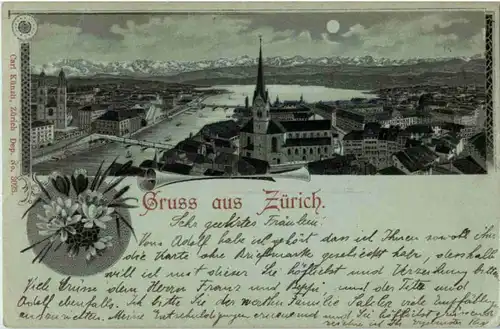 Carl Künzli, Zürich Dep. No. 3023.
Gruss aus Zürich.
Sehr geehrtes Fräulein!
Von Adolf habe ich gehört dass ich Ihnen sowohl ihr
die Karte ohne Briefmarke geschickt habe, desshalb
will ich mit dieser Sie höflichst und Verzeihung bitten
Viele Grüsse dem Herrn Franz und Peppi und der Titta und
Adolf ebenfalls. Ich bitte Sie der werten Familie viele Empfehlungen
auszurichten. Meine Entschuldigung erneuernd und Sie höflichst grüssend